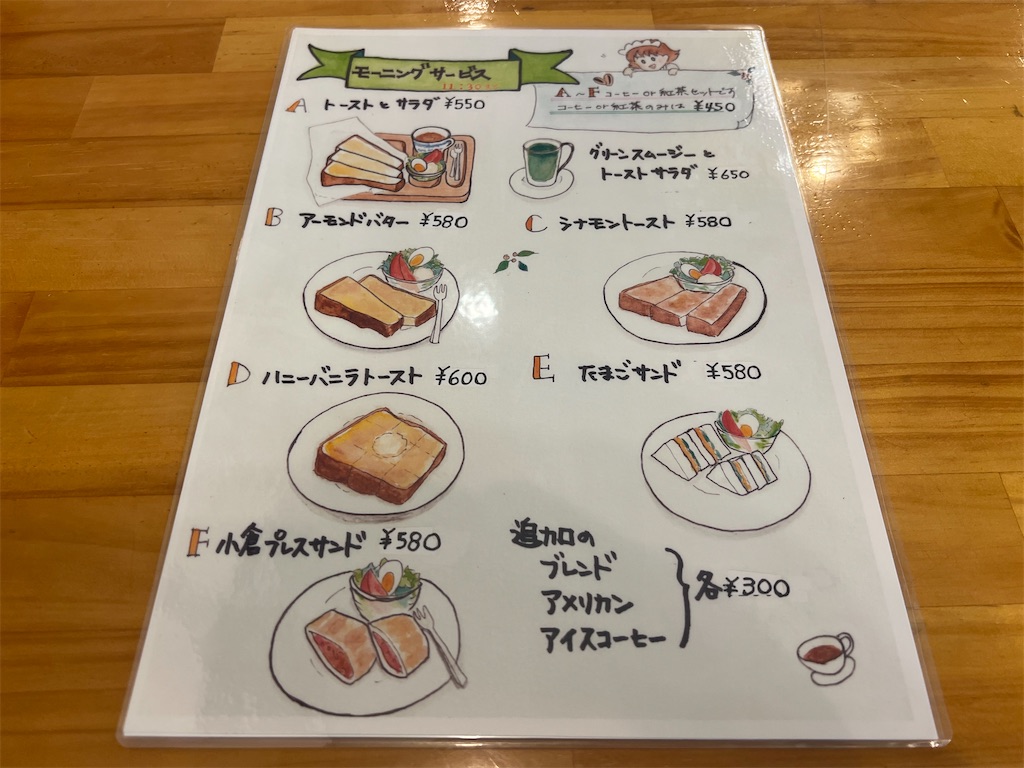 モーニングサービス
A〜F コーヒーor紅茶セットです
コーヒーor紅茶のみは ¥450
A トーストとサラダ ¥550
グリーンスムージーと
トーストサラダ ¥650
B アーモンドバター ¥580
C シナモントースト ¥580
D ハニーバニラトースト ¥600
E たまごサンド ¥580
F 小倉プレスサンド ¥580
追加の
ブレンド
アメリカン
アイスコーヒー
各¥300